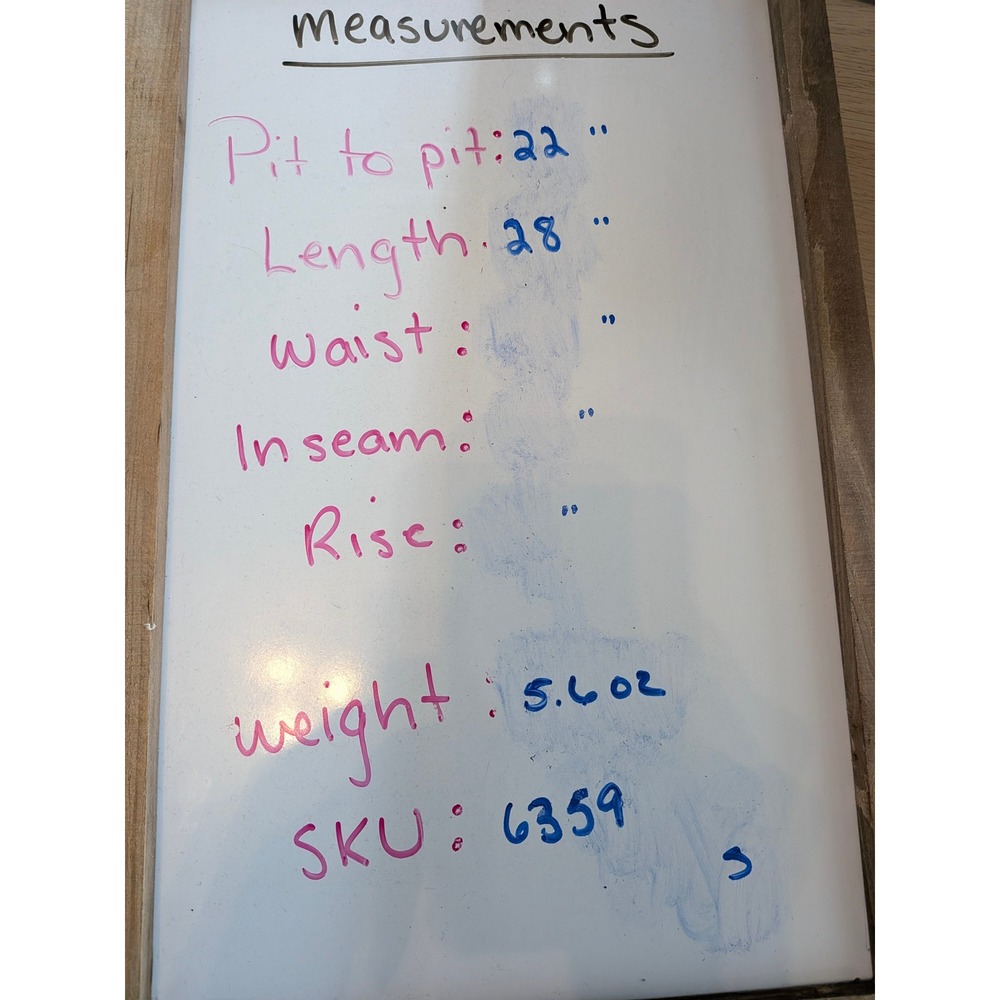 Measurements
Pit to pit: 22 "
Length. 28 "
Waist: "
Inseam: "
Rise: "
weight: 5.6 oz
SKU: 6359
S